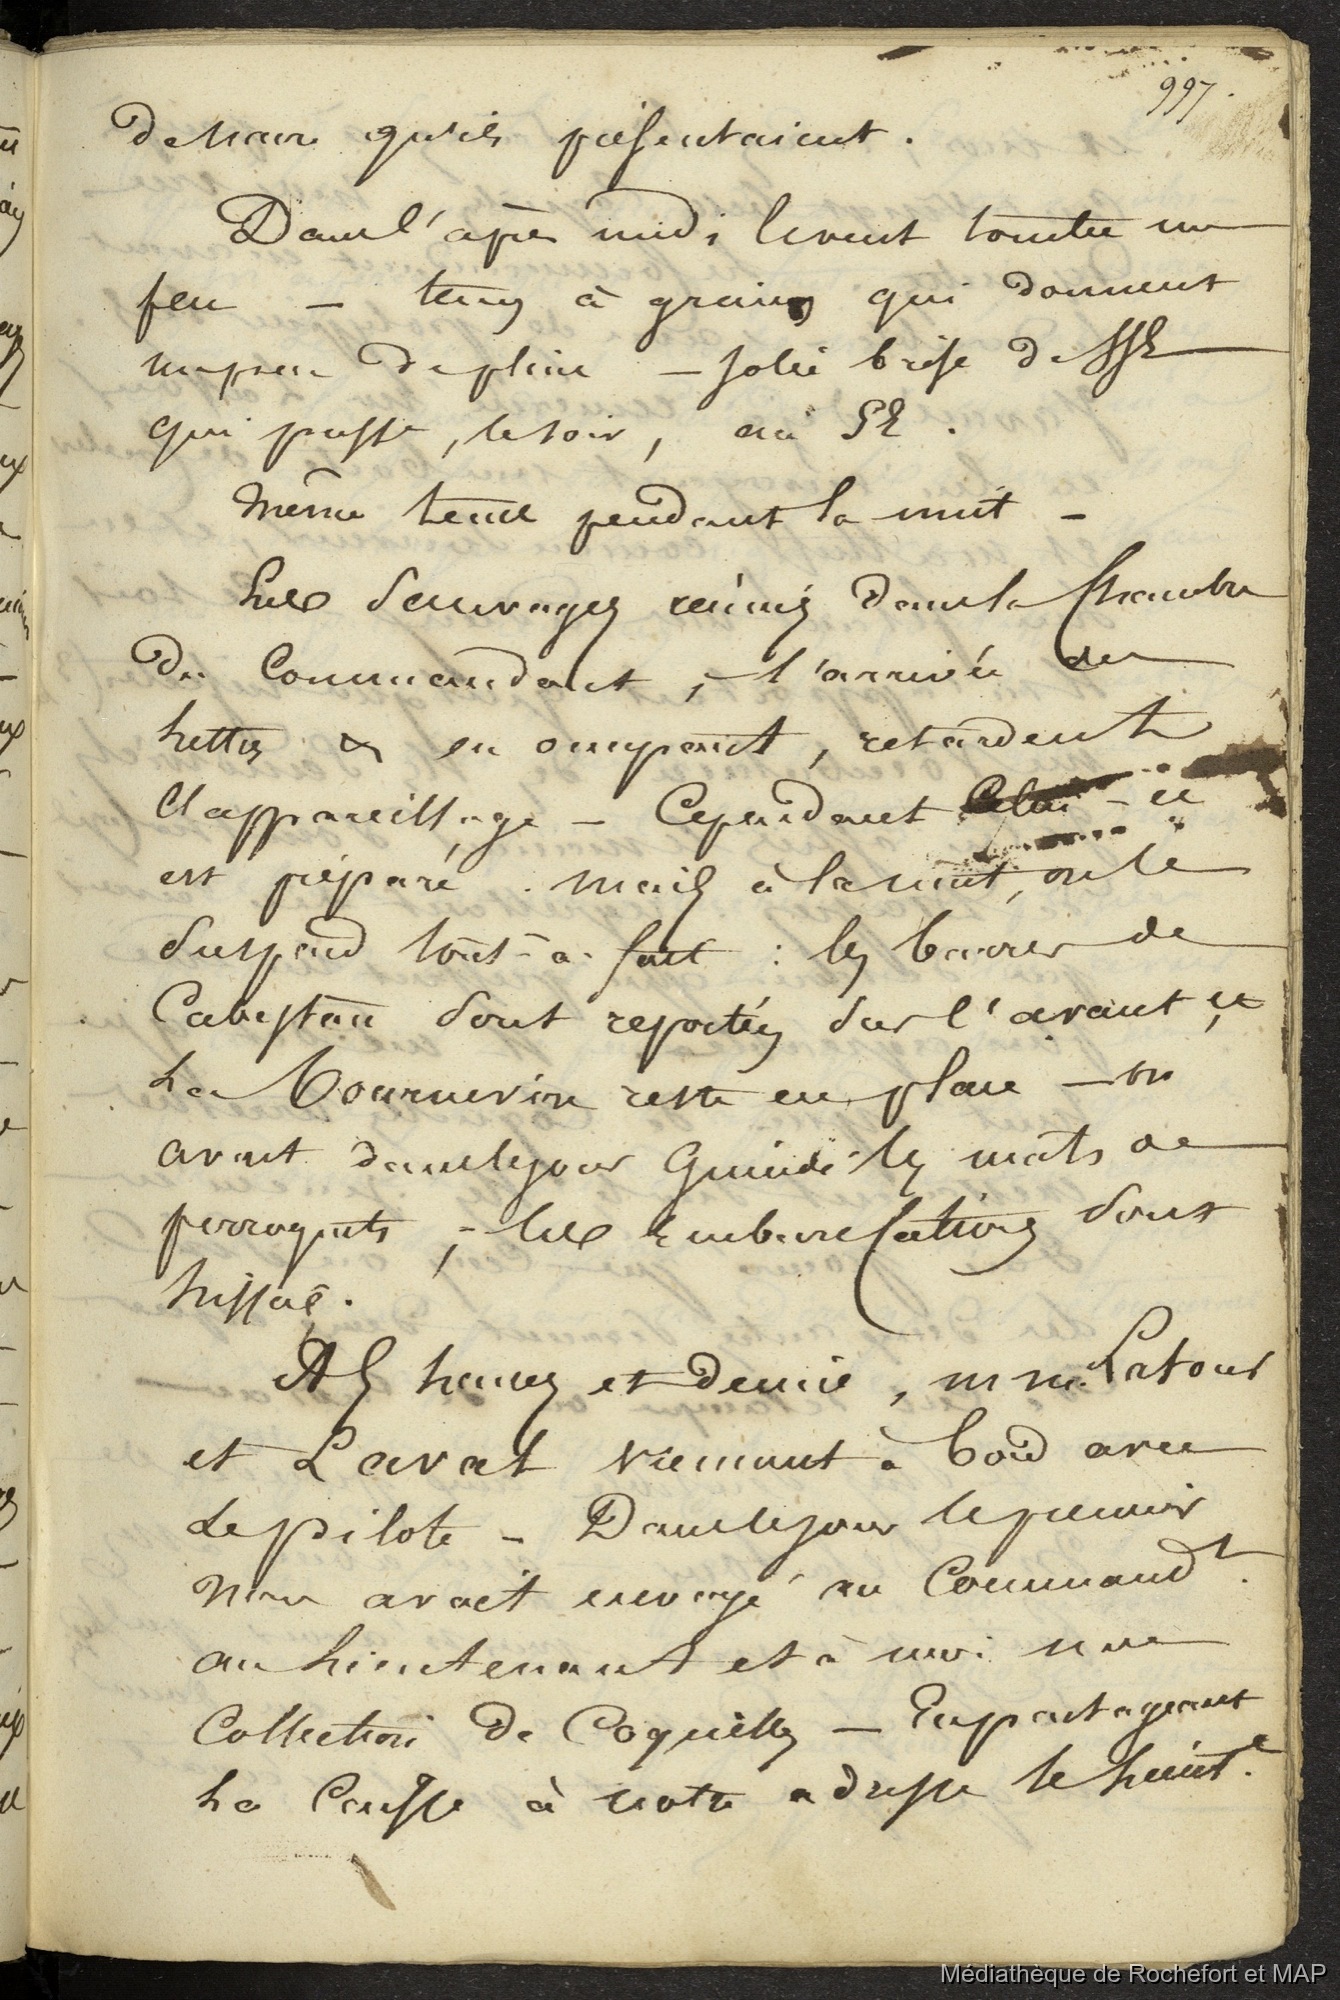 997.
de nacre qu'ils présentaient.
Dans l'après midi le vent tombe un
peu – tems à grains qui donnent
un peu de pluie – jolie brise de SSE
qui passe, le soir, au SE.
Même tems pendant la nuit –
Les Sauvages réunis dans la Chambre
du Commandant, l'arrivée des
lettres & en  , retardent
l'appareillage – Cependant Celui-ci
est préparé. mais à la nuit, on le
suspend tout-à-fait : les barres de
Cabestan sont reportées sur l'avant et
la Tournevire reste en place – on
avait dans le jour Guindé les mats de
perroquets ; – les Embarcations sont
hissées.
A heures et demie, m m. Latour
et Lavat viennent à bord avec
Le pilote – Dans le jour le premier
nous avait envoyé au Commandt.
au Lieutenant et à moi une
Collection de Coquilles – En partageant
la Caisse à notre adresse le Lieutt.
Médiathèque de Rochefort et MAP